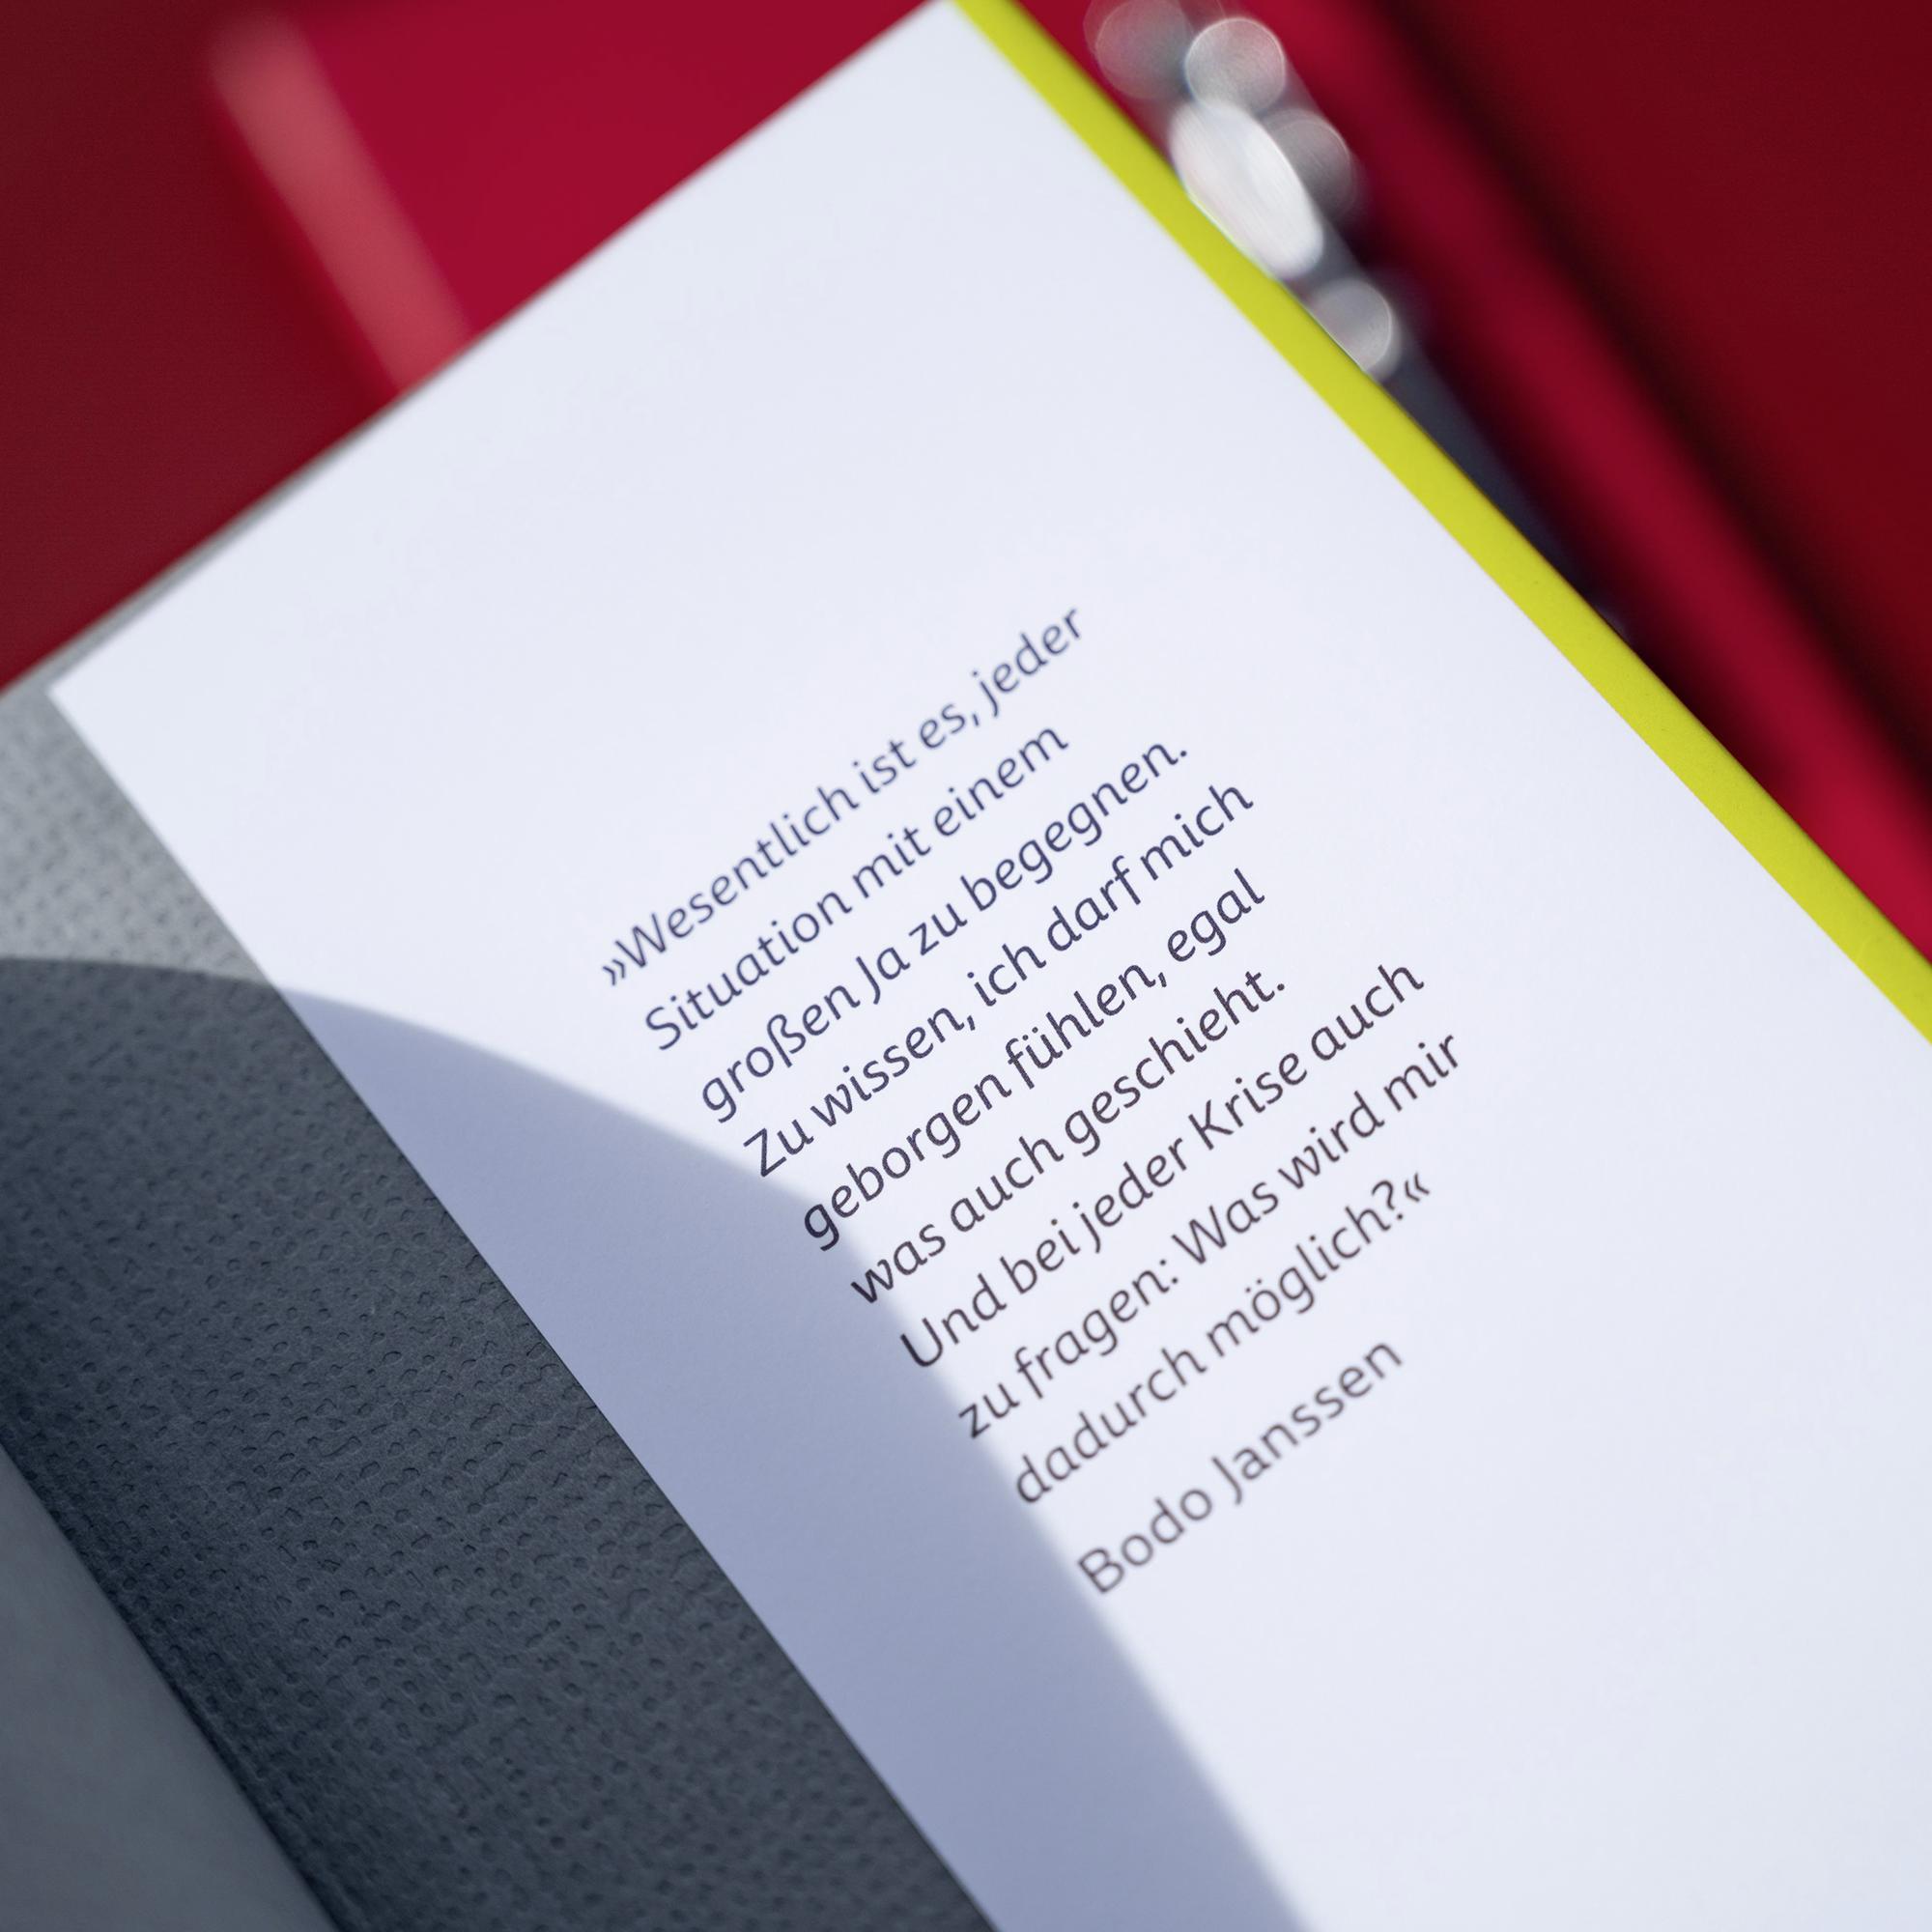 »Wesentlich ist es, jeder
Situation mit einem
großen Ja zu begegnen.
Zu wissen, ich darf mich
geborgen fühlen, egal
was auch geschieht.
Und bei jeder Krise auch
zu fragen: Was wird mir
dadurch möglich?«
Bodo Janssen